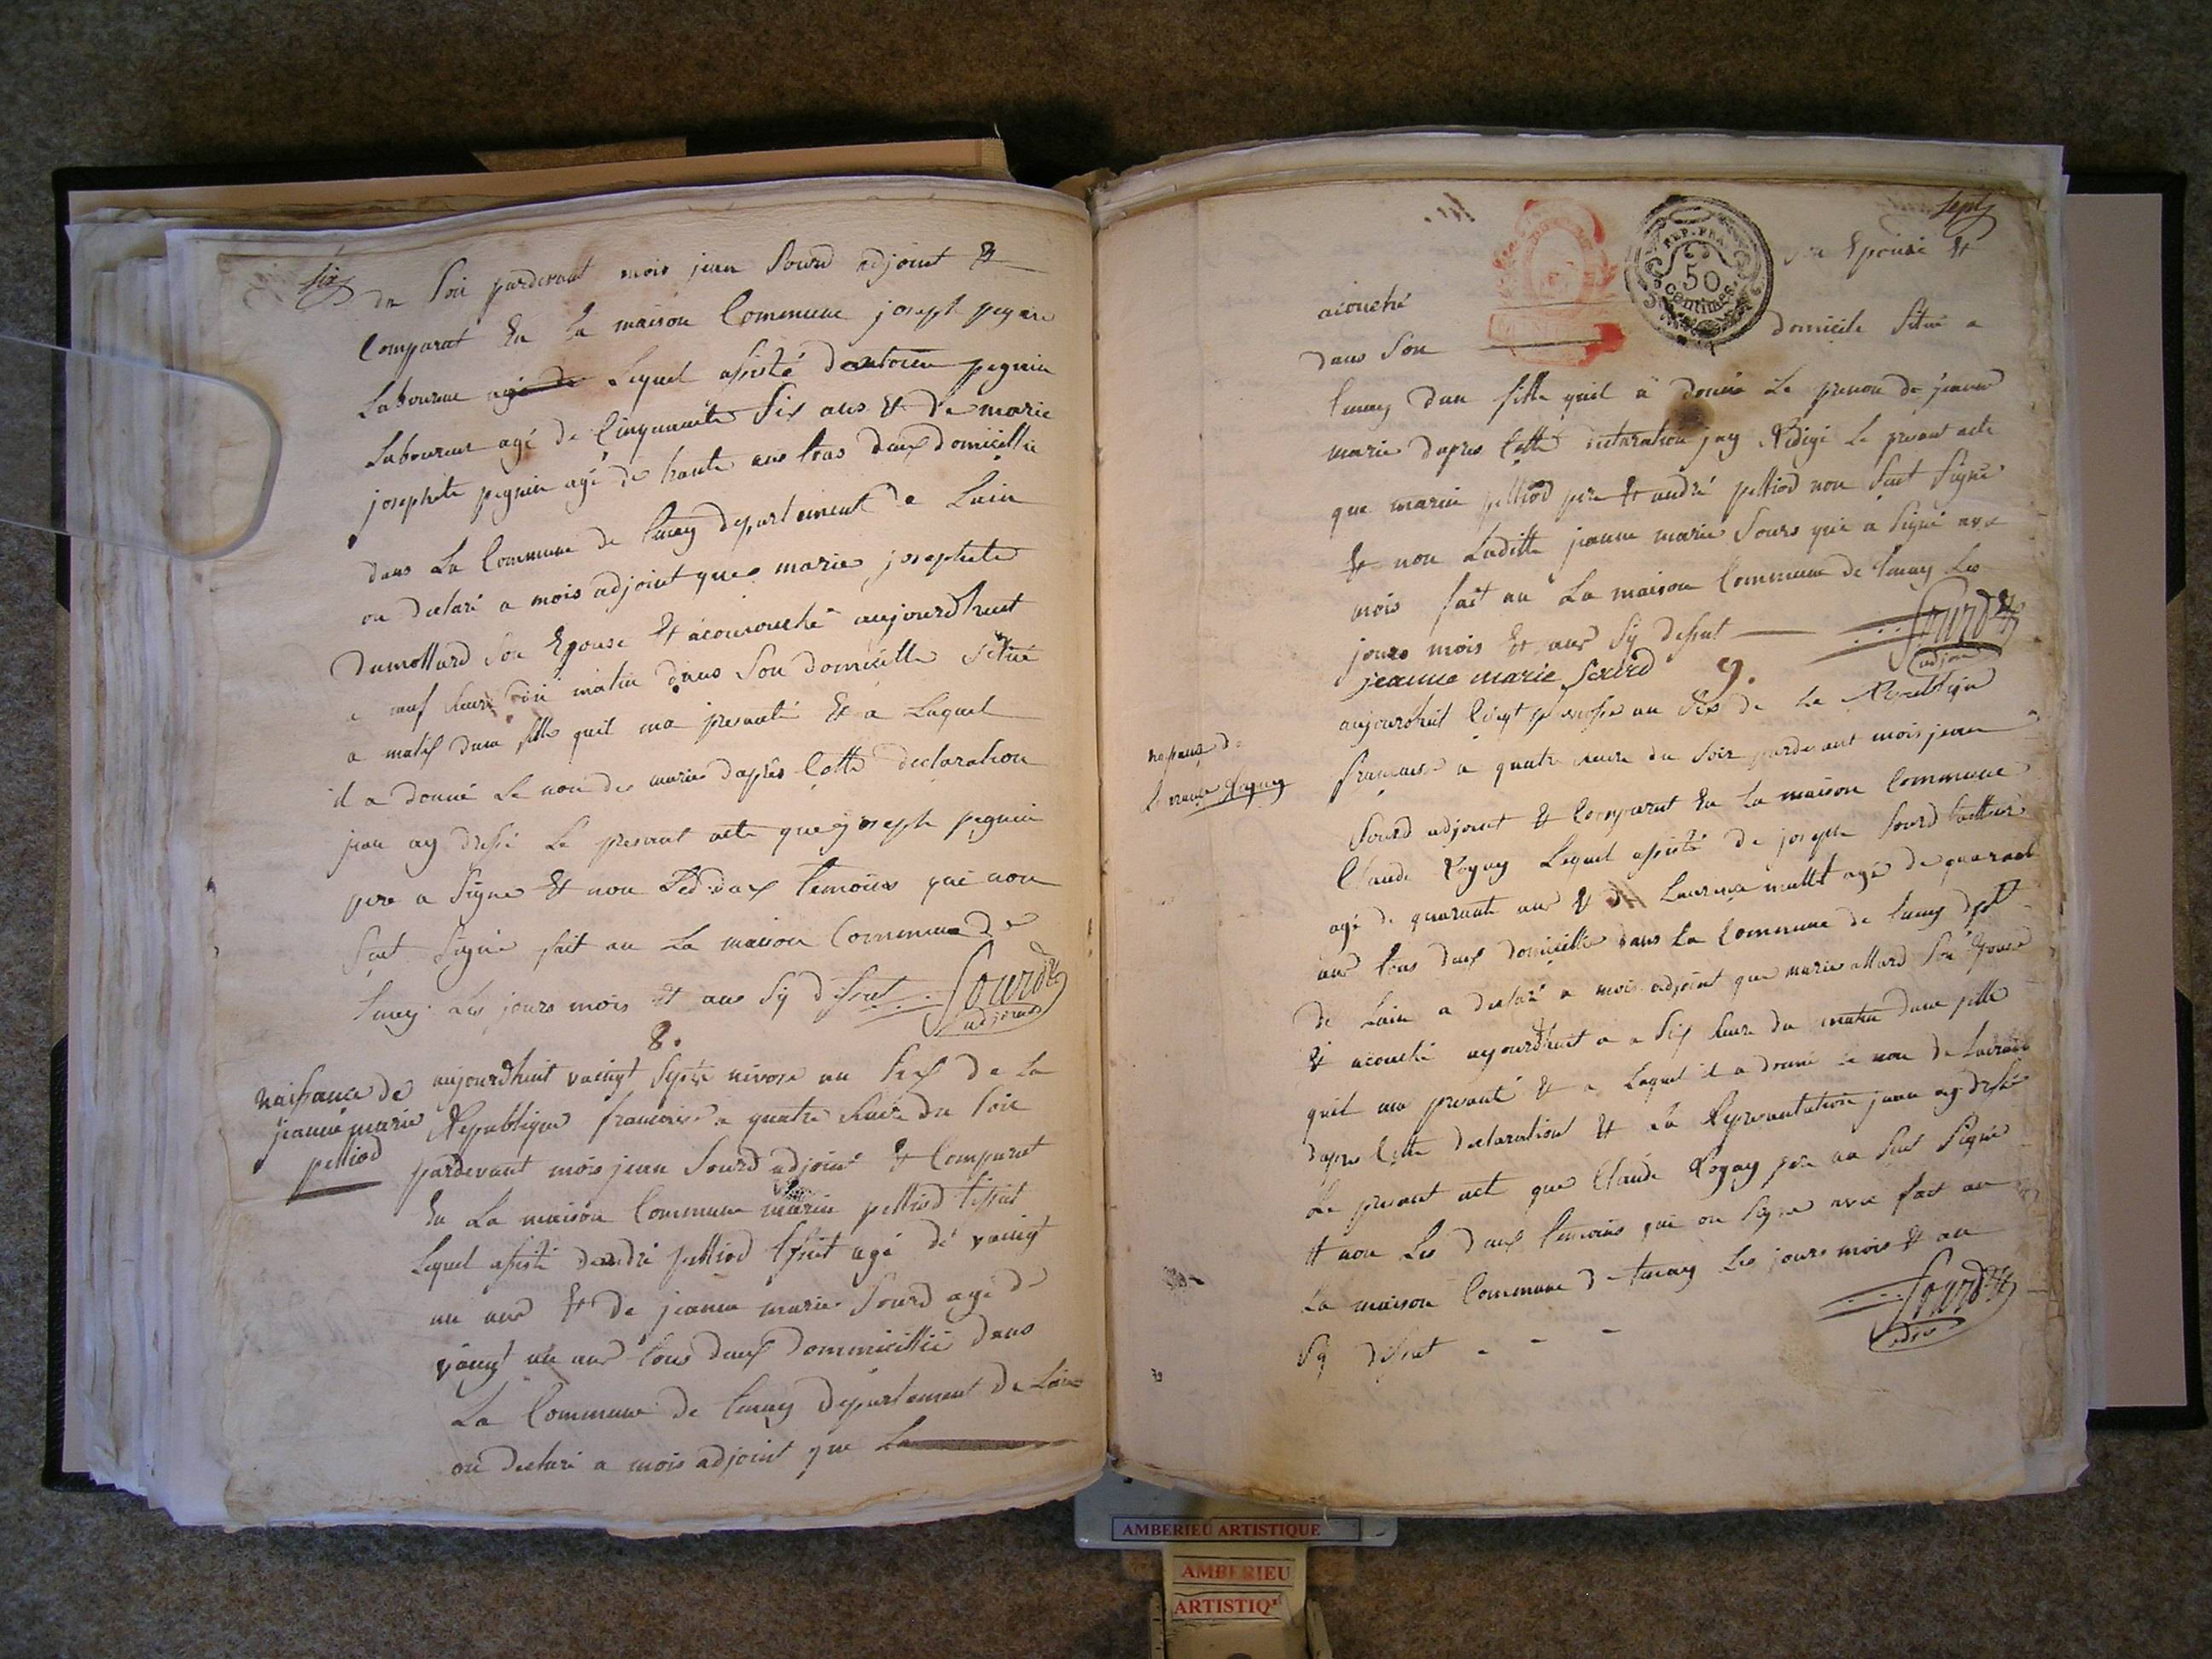 six
du Soir pardevant mois jean Sourd adjoint &
Comparat En La maison Commune joseph peguin
Laboureur agé de Lequel assisté dantoine peguin
Laboureur agé de Cinquante Six ans & de marie
josephete peguin agé de trante ans tous deux domicillié
dans La Commune de tenay departement de Lain
on declaré a mois adjoint que marie josephete
Dumollard Son Epouse Et acourouché aujourdhuit
a neuf heure matin dans Son domicille Situé
a matif dune fille quil ma presanté & a Laquel
il a donné Le non de marie daprès Cette declaration
jean ay dressé Le presant acte que joseph peguin
pere a Signe & non Led. deux temoins qui non
Sut Signé fait an La maison Commune de
tenay Les jours mois & ans Sy dessut Sourd
adjoint
8.
naissance de
jeanne marie
pettiod
aujourdhuit vaingt Septe nivose an Six de La
Republique francaise a quatre heure du Soir
pardevant mois jean Sourd adjoint & Comparut
En La maison Commune marin pettiod tissut
Lequel assisté dandré pettiod tissut agé de vaingt
un ans & de jeanne marie Sourd agé de
vaingt un ans tous deux dommicillié dans
La Commune de tenay departement de Lain
on declaré a mois adjoint que La
Sept
REP. FRA.
50
centimes
Epouse &
acouché
dans Son domicile Situé a
tenay dun fille quil a donné Le prenon de jeanne
marie dapres Cette declaration jay Rédigé Le presant acte
que marin pettiod pere & andré pettiod non Sut Signé
& non Laditte jeanne marie Sourd qui a Signé avec
mois fait an La maison Commune de tenay Les
jours mois & ans Sy dessut Sourd
adjoint
jeanne marie Sourd
9.
naissance de
Laurance Rogay
aujourdhuit vingt an Six de La Republique
francaise a quatre heure du Soir pardevant mois jean
Sourd adjoint & Comparut En La maison Commune
Claude Rogay Lequel assisté de joseph Sourd
agé de quarante ans & de Laurance mallet agé de quarante
ans tous deux domicillié dans La Commune de tenay dept
de Lain a declaré a mois adjoint que marie allard Son Epouse
& acouché aujourdhuit a a Six heure du matin dune fille
quil ma presanté & a Laquel il a donné Le non de Laurance
dapres Cette declaration & La Representation jean ay dressé
Le presant acte que Claude Rogay pere na Sut Signé
& non Les deux temoins qui on Signe avec fait an
La maison Commune de tenay Les jours mois & an
Sy dessut Sourd
adjoint
AMBERIEU ARTISTIQUE
AMBERIEU
ARTISTIQ